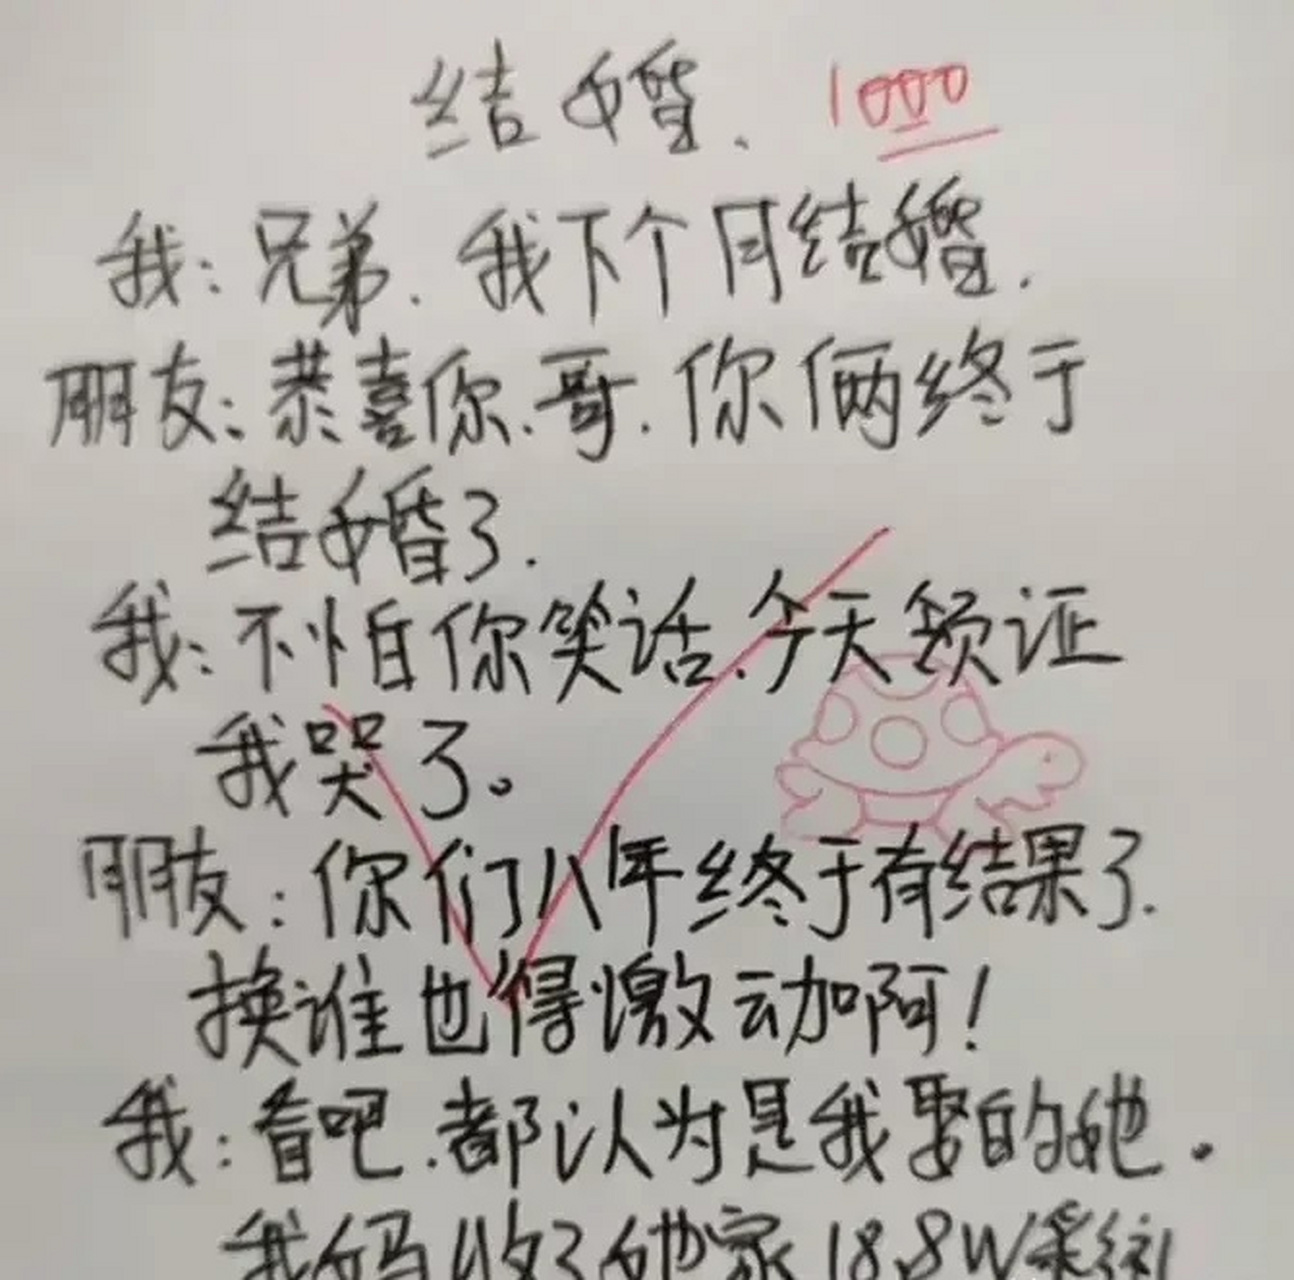 结婚. 1000
我:兄弟.我下个月结婚.
朋友:恭喜你.哥.你俩终于
结婚了.
我:不怕你笑话.今天领证
我哭了。
朋友:你们八年终于有结果了.
换谁也得激动啊!
我:看吧.都认为是我娶的她.
我妈收了她家18.8W彩